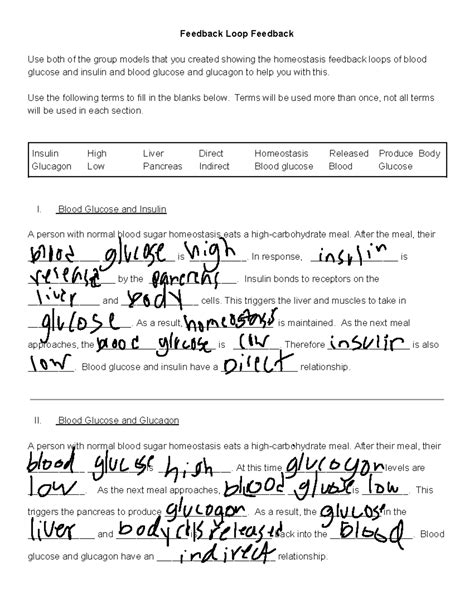 Feedback Loop Feedback
Use both of the group models that you created showing the homeostasis feedback loops of blood
glucose and insulin and blood glucose and glucagon to help you with this.
Use the following terms to fill in the blanks below. Terms will be used more than once, not all terms
will be used in each section.
Insulin High Liver Direct Homeostasis Released Produce Body
Glucagon Low Pancreas Indirect Blood glucose Blood Glucose
I. Blood Glucose and Insulin
A person with normal blood sugar homeostasis eats a high-carbohydrate meal. After the meal, their
blood glucose is high. In response, insulin is
by the. Insulin bonds to receptors on the
liver and body cells. This triggers the liver and muscles to take in
glucose. As a result, homeostasis is maintained. As the next meal
approaches, the blood glucose is low. Therefore insulin is also
low. Blood glucose and insulin have a Direct relationship.
II. Blood Glucose and Glucagon
A person with normal blood sugar homeostasis eats a high-carbohydrate meal. After their meal, their
blood glucose is high. At this time levels are
low. As the next meal approaches, blood is low. This
triggers the pancreas to produce glucogon. As a result, the glucose in the
liver and body released back into the blood. Blood
glucose and glucagon have an indirect relationship.